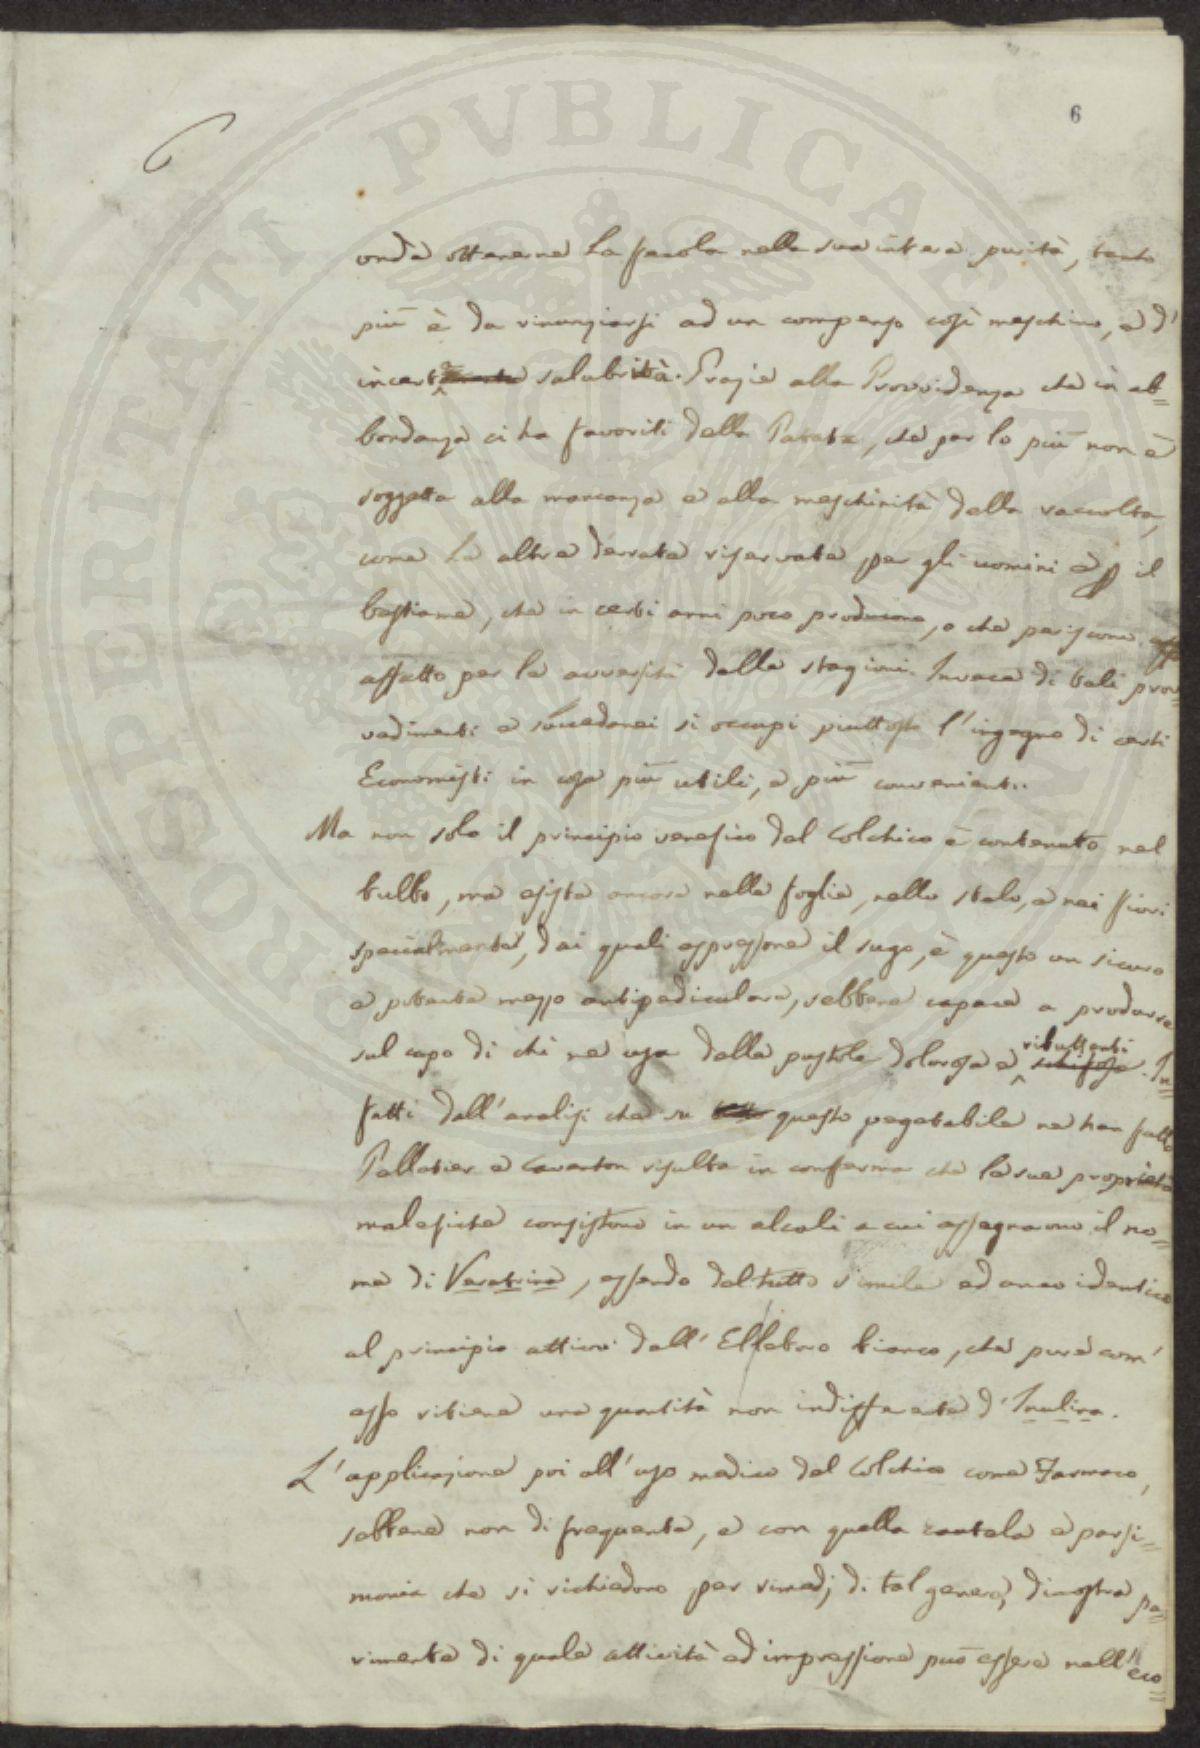 6
onde ottenerne la fecola nella sua intera purità, tanto
più è da rinunziarsi ad un compenso così meschino, e d'
incerta salubrità. Grazie alla Provvidenza che in ab=
bondanza ci ha favoriti della Patata, che per lo più non è
soggetta alla mancanza e alla meschinità della raccolta,
come le altre derrate riservate per gli uomini e p il
bestiame, che in certi anni poco producono, o che periscono
affatto per le avversità delle stagioni. Invece di tali prov=
vedimenti e succedanei si occupi piuttosto l'ingegno di certi
Economisti in cose più utili, e più convenienti.
Ma non solo il principio venefico del Colchico è contenuto nel
bulbo, ma esiste ancora nelle foglie, nello stelo, e nei fiori
specialmente, dai quali espressone il sugo, è questo un sicuro
e potente mezzo antipediculare, sebbene capace a produrre
sul capo di chi ne usa delle pustole dolorose e ributtanti schifose. In=
fatti dall'analisi che su questo vegetabile ne han fatto
Pelletier e Caventon risulta in conferma che le sue proprietà
malefiche consistono in un alcali a cui assegnarono il no=
me di Veratrina, essendo del tutto simile ed anco identico
al principio attivo dell'Elleboro bianco, che pure com'
esso ritiene una quantità non indifferente d'Inulina.
L'applicazione poi all'uso medico del Colchico come Farmaco,
sebbene non di frequente, e con quella cautela e parsi=
monia che si richiedono per rimedj di tal genere, dimostra pa=
rimente di quale attività ed impressione può essere nell'eco=